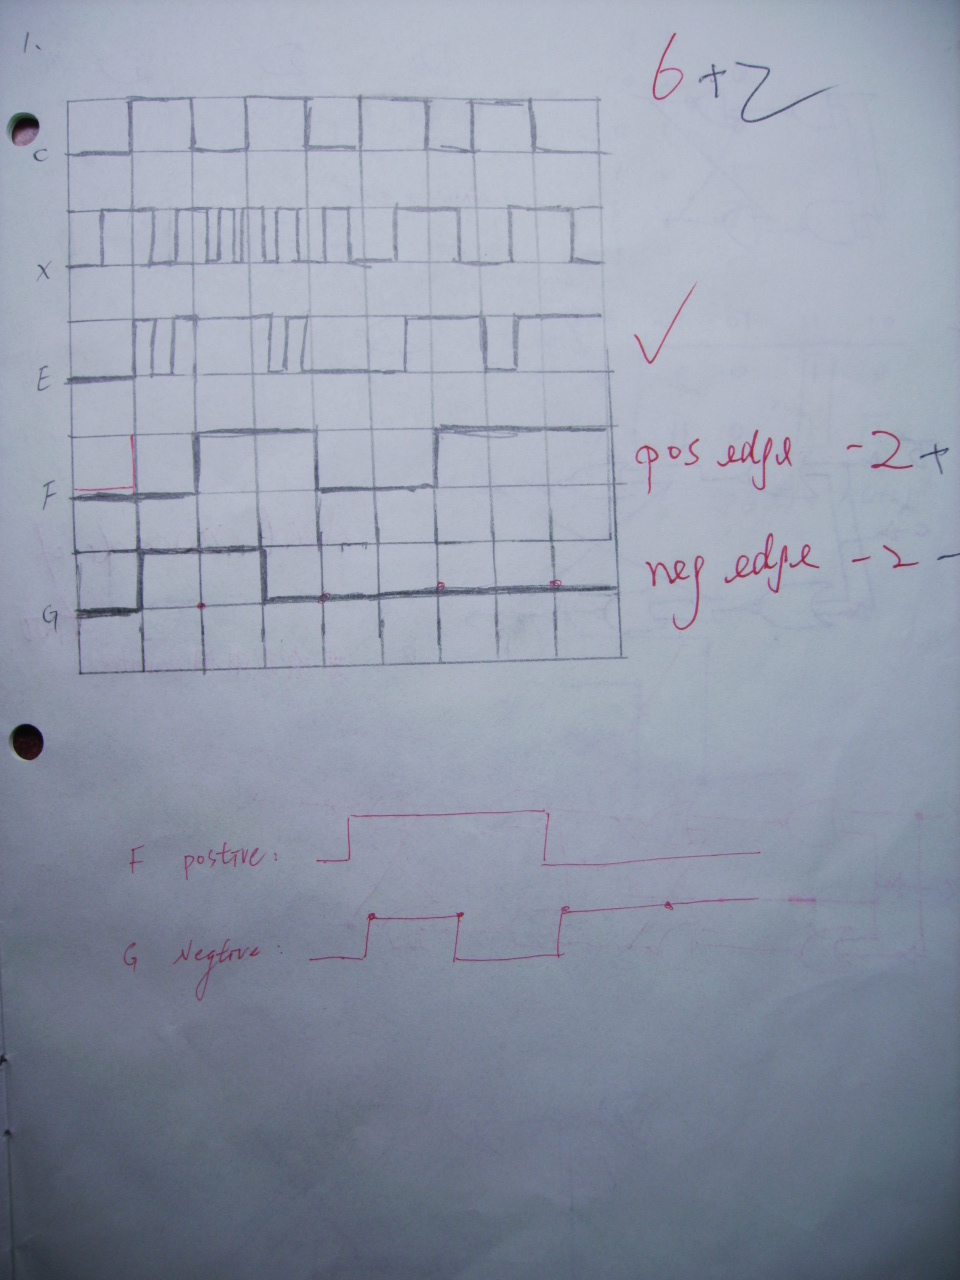 1.
6 + 2
C
X
E
F
pos edge -2 +
neg edge -2 -
G
F postive:
G Negtive: